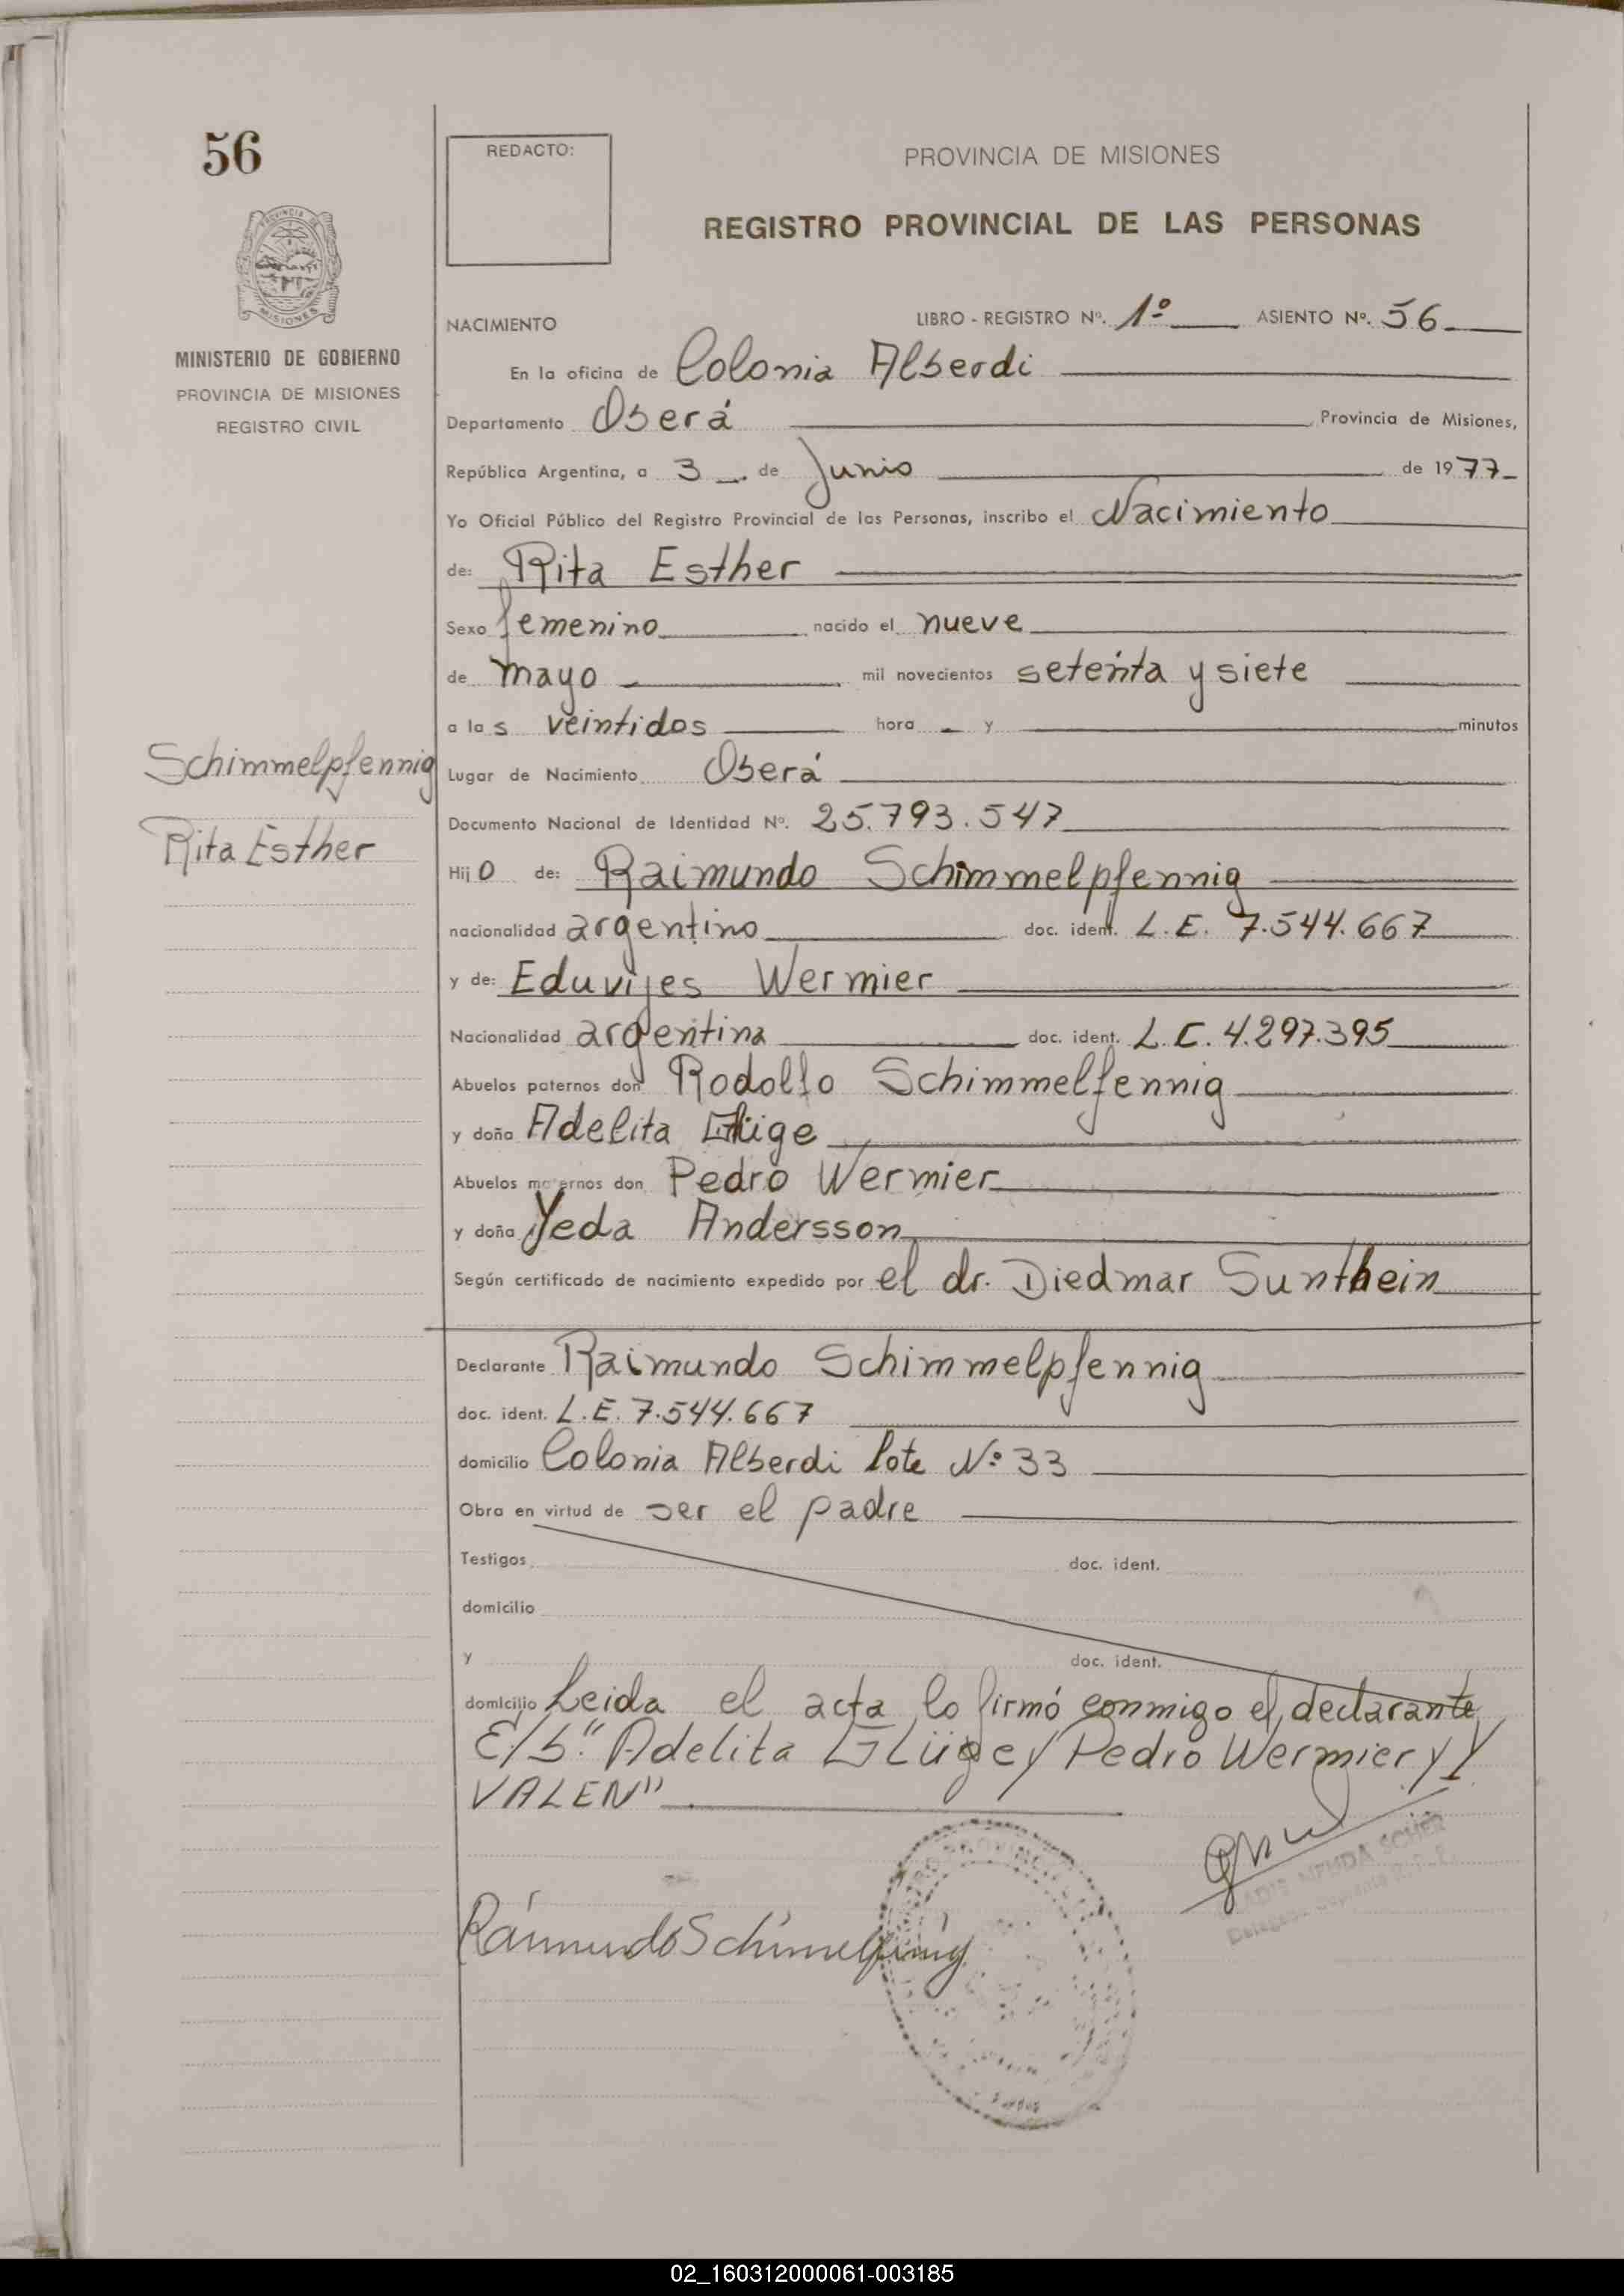 56
REDACTO:
PROVINCIA DE MISIONES
REGISTRO PROVINCIAL DE LAS PERSONAS
PROVINCIA DE
MISIONES
MINISTERIO DE GOBIERNO
PROVINCIA DE MISIONES
REGISTRO CIVIL
NACIMIENTO
LIBRO - REGISTRO Nº. 1º ASIENTO Nº. 56
En la oficina de Colonia Alberdi
Departamento Oberá Provincia de Misiones,
República Argentina, a 3 de Junio de 1977
Yo Oficial Público del Registro Provincial de las Personas, inscribo el Nacimiento
de: Rita Esther
Sexo femenino nacido el nueve
de mayo mil novecientos setenta y siete
a las veintidos hora - y minutos
Schimmelpfennig
Rita Esther
Lugar de Nacimiento Oberá
Documento Nacional de Identidad Nº. 25.793.547
Hijo de: Raimundo Schimmelpfennig
nacionalidad argentino doc. ident. L.E. 7.544.667
y de: Eduvijes Wermier
Nacionalidad argentina doc. ident. L.C. 4.297.395
Abuelos paternos don Rodolfo Schimmelfennig
y doña Adelita Glüge
Abuelos maternos don Pedro Wermier
y doña Yeda Andersson
Según certificado de nacimiento expedido por el dr. Diedmar Sunthein
Declarante Raimundo Schimmelpfennig
doc. ident. L.E. 7.544.667
domicilio Colonia Alberdi lote Nº 33
Obra en virtud de ser el padre
Testigos doc. ident.
domicilio
y doc. ident.
domicilio Leida el acta lo firmó conmigo el declarante
E/S." Adelita Glüge y Pedro Wermier y Y
VALEN"
MENDA SCHER
Raimundo Schimmelpfennig
02_160312000061-003185